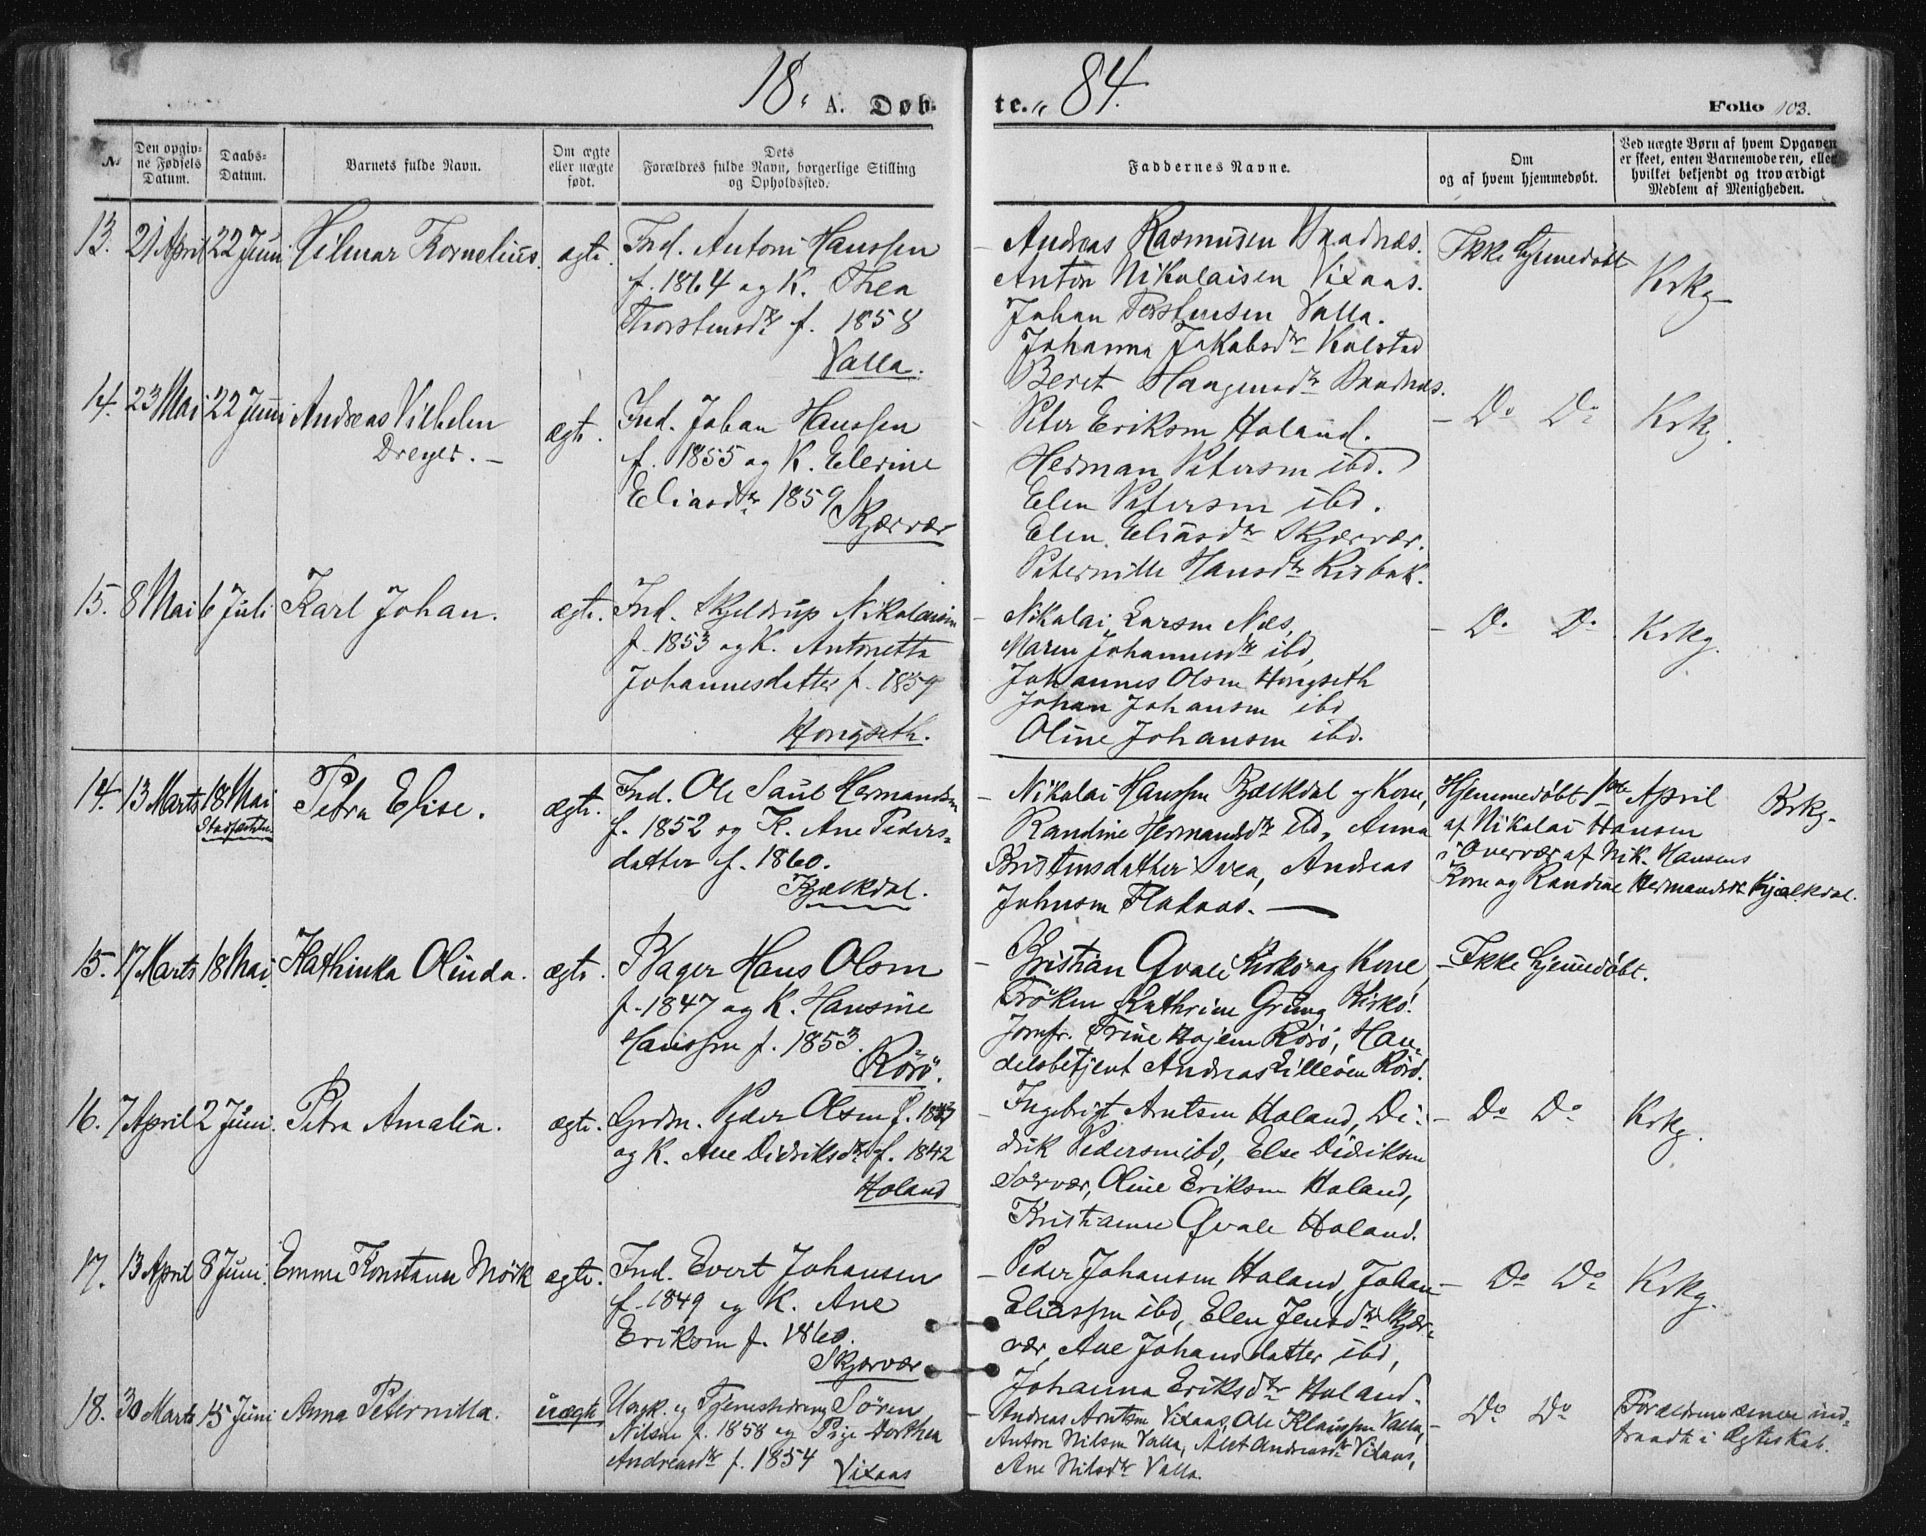 18 A. Døb- te. 84. Folio 103.
№
Den opgiv-
ne Fødsels
Datum.
Daabs-
Datum.
Barnets fulde Navn.
Om ægte
eller uægte
født.
Dets
Forældres fulde Navn, borgerlige Stilling
og Opholdssted.
Faddernes Navne.
Om
og af hvem hjemmedøbt.
Ved uægte Børn af hvem Opgaven
er skeet, enten Barnemoderen, eller
hvilket bekjendt og troværdigt
Medlem af Menigheden.
13. 21 April 22 Juni Hilmar Kornelius. ægte.
Ind. Antoni Hanssen
f. 1864 og K. Thea
Thorstensdtr f. 1858
Valla.
Andreas Rasmusen
Anton Nikolaisen Vixaas.
Johan Torstensen Valla.
Johanna Jakobsdtr Kolstad
Beret Haagensdtr
Ikke hjemmedøbt
Krkg
14. 23 Mai 22 Juni Andreas Vilhelm
Dreyer. ægte.
Ind. Johan Hanssen
f. 1855 og K. Elerine
Eliasdtr 1859
Skjærvær
Peter Eriksen Holand.
Herman Petersen ibd.
Elen Petersen ibd.
Elen Eliasdtr Skjærvær.
Peternille Hansdtr
Do Do
Krkg.
15. 8 Mai 6 Juli Karl Johan. ægte.
Ind. Skjeldrup Nikolaisen
f. 1853 og K. Antonetta
Johannesdatter f. 1859
Hongseth.
Nikolai Larsen Næs,
Maren Johannesdtr ibd,
Johannes Olsen Hongseth
Johan Johansen ibd
Oline Johansen ibd.
Do Do
Krkg.
14. 13 Marts 18 Mai
Stadfæstelse
Petra Elise. ægte.
Ind. Ole Saul Hermandsen
f. 1852 og K. Ane Peders-
datter f. 1860.
Kjælkdal.
Nikolai Hanssen Kjælkdal og Kone,
Randine Hermandsdtr ibd, Anna
Kristensdatter Svea, Andreas
Johnsen Flataas.
Hjemmedøbt 1ste April
af Nikolai Hansen
i Overvær af Nik. Hansens
Kone og Randine Hermandsdtr Kjælkdal.
Krkg.
15. 17 Marts 18 Mai. Kathinka Olinda. ægte.
Bager Hans Olsen
f. 1847 og K. Hansine
Hanssen f. 1853.
Rörö.
Kristian Qvale Kirkö og Kone,
Fröken Kathrine Grung Kirkö.
Jomfr. Trine Hojem Rörö, Han-
delsbetjent Andreas Lilleöen Rörö.
Ikke hjemmedøbt.
16. 7 April 2 Juni. Petra Amalia. ægte.
Grdm. Peder Olsen f.
og K. Ane Didriksdtr f. 1842
Holand
Ingebrigt Arntsen Holand, Di-
drik Pedersen ibd, Else Didriksen
Sörvær, Oline Eriksen Holand,
Kristianne Qvale Holand.
Do Do
Krkg.
17. 13 April 8 Juni. Emma Konstanse Mörk ægte.
Ind. Evert Johansen
f. 1849 og K. Ane
Eriksen f. 1860.
Skjærvær
Peder Johansen Holand, Johan
Eliassen ibd, Elen Jensdtr Skjær-
vær, Ane Johansdatter ibd,
Johanna Eriksdtr Holand.
Do Do
Krkg.
18. 30 Marts 15 Juni Anna Peternilla. uægte
Ungk. og Tjenestedreng Sören
Nilsen f. 1858 og Pige Dorthea
Andreasdtr f. 1854
Vixaas
Andreas Arntsen Vixaas, Ole Klaussen Valla,
Anton Nilsen Valla, Alet Andreasdtr Vixaas,
Ane Nilsdtr Valla.
Do Do
Forældrene senere ind-
traadt i Ægteskab.